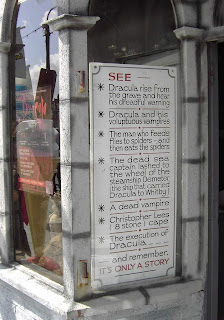 SEE
* Dracula rise from
the grave and hear
his dreadful warning
* Dracula and his
voluptuous vampires
* The man who feeds
flies to spiders - and
then eats the spiders
* The dead sea
captain lashed to
the wheel of the
steamship Demeter
the ship that carried
Dracula to Whitby!
* A dead vampire
* Christopher Lees
8 stone! cape
* The execution of
Dracula
and remember
IT'S ONLY A STORY